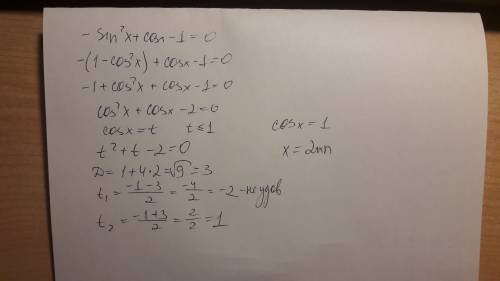 - sin²x + cosx - 1 = 0
-(1 - cos²x) + cosx - 1 = 0
-1 + cos²x + cosx - 1 = 0
cos²x + cosx - 2 = 0
cosx = t t ≤ 1
t² + t - 2 = 0
D = 1 + 4·2 = √9 = 3
t₁ = (-1-3)/2 = -4/2 = -2 - неудов
t₂ = (-1+3)/2 = 2/2 = 1
cosx = 1
x = 2πn